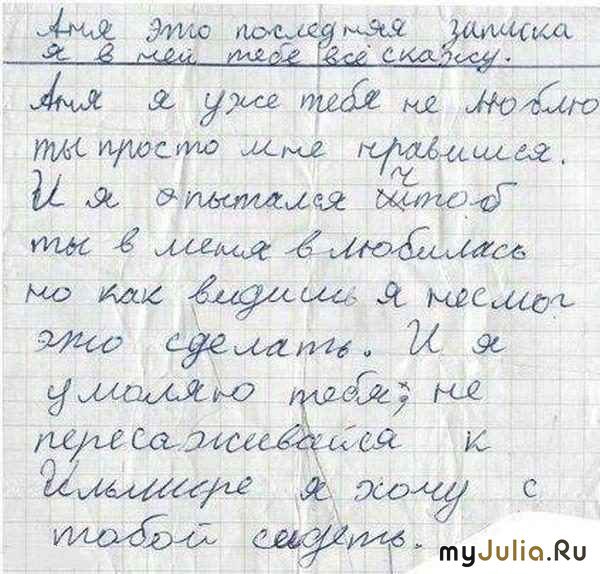 Аня это последняя записка
я в ней тебе всё скажу.
Аня я уже тебя не люблю
ты просто мне нравишся.
И я опытался чтоб
ты в меня влюбилась
но как видишь я несмог
это сделать. И я
умоляю тебя, не
пересаживайся к
Ильмире я хочу с
тобой сидеть.
myJulia.Ru